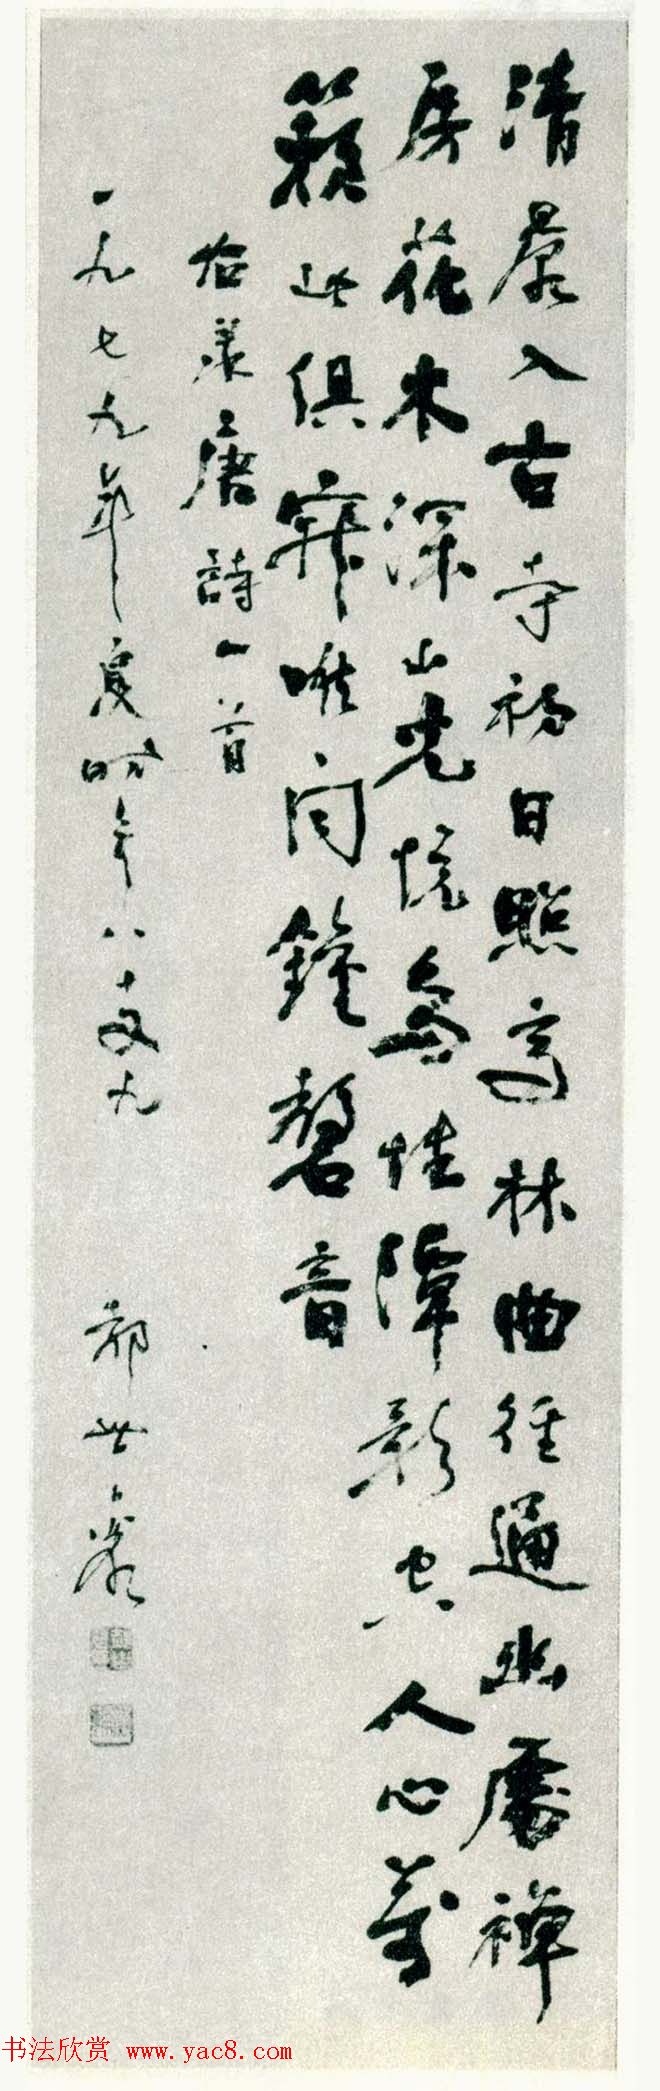 清晨入古寺初日照高林曲径通幽處禅
房花木深山光悦鸟性潭影空人心萬
籟此俱寂唯闻鐘磬音
右录唐詩一首
一九七九年夏时年八十又九
书法欣赏 www.yac8.com